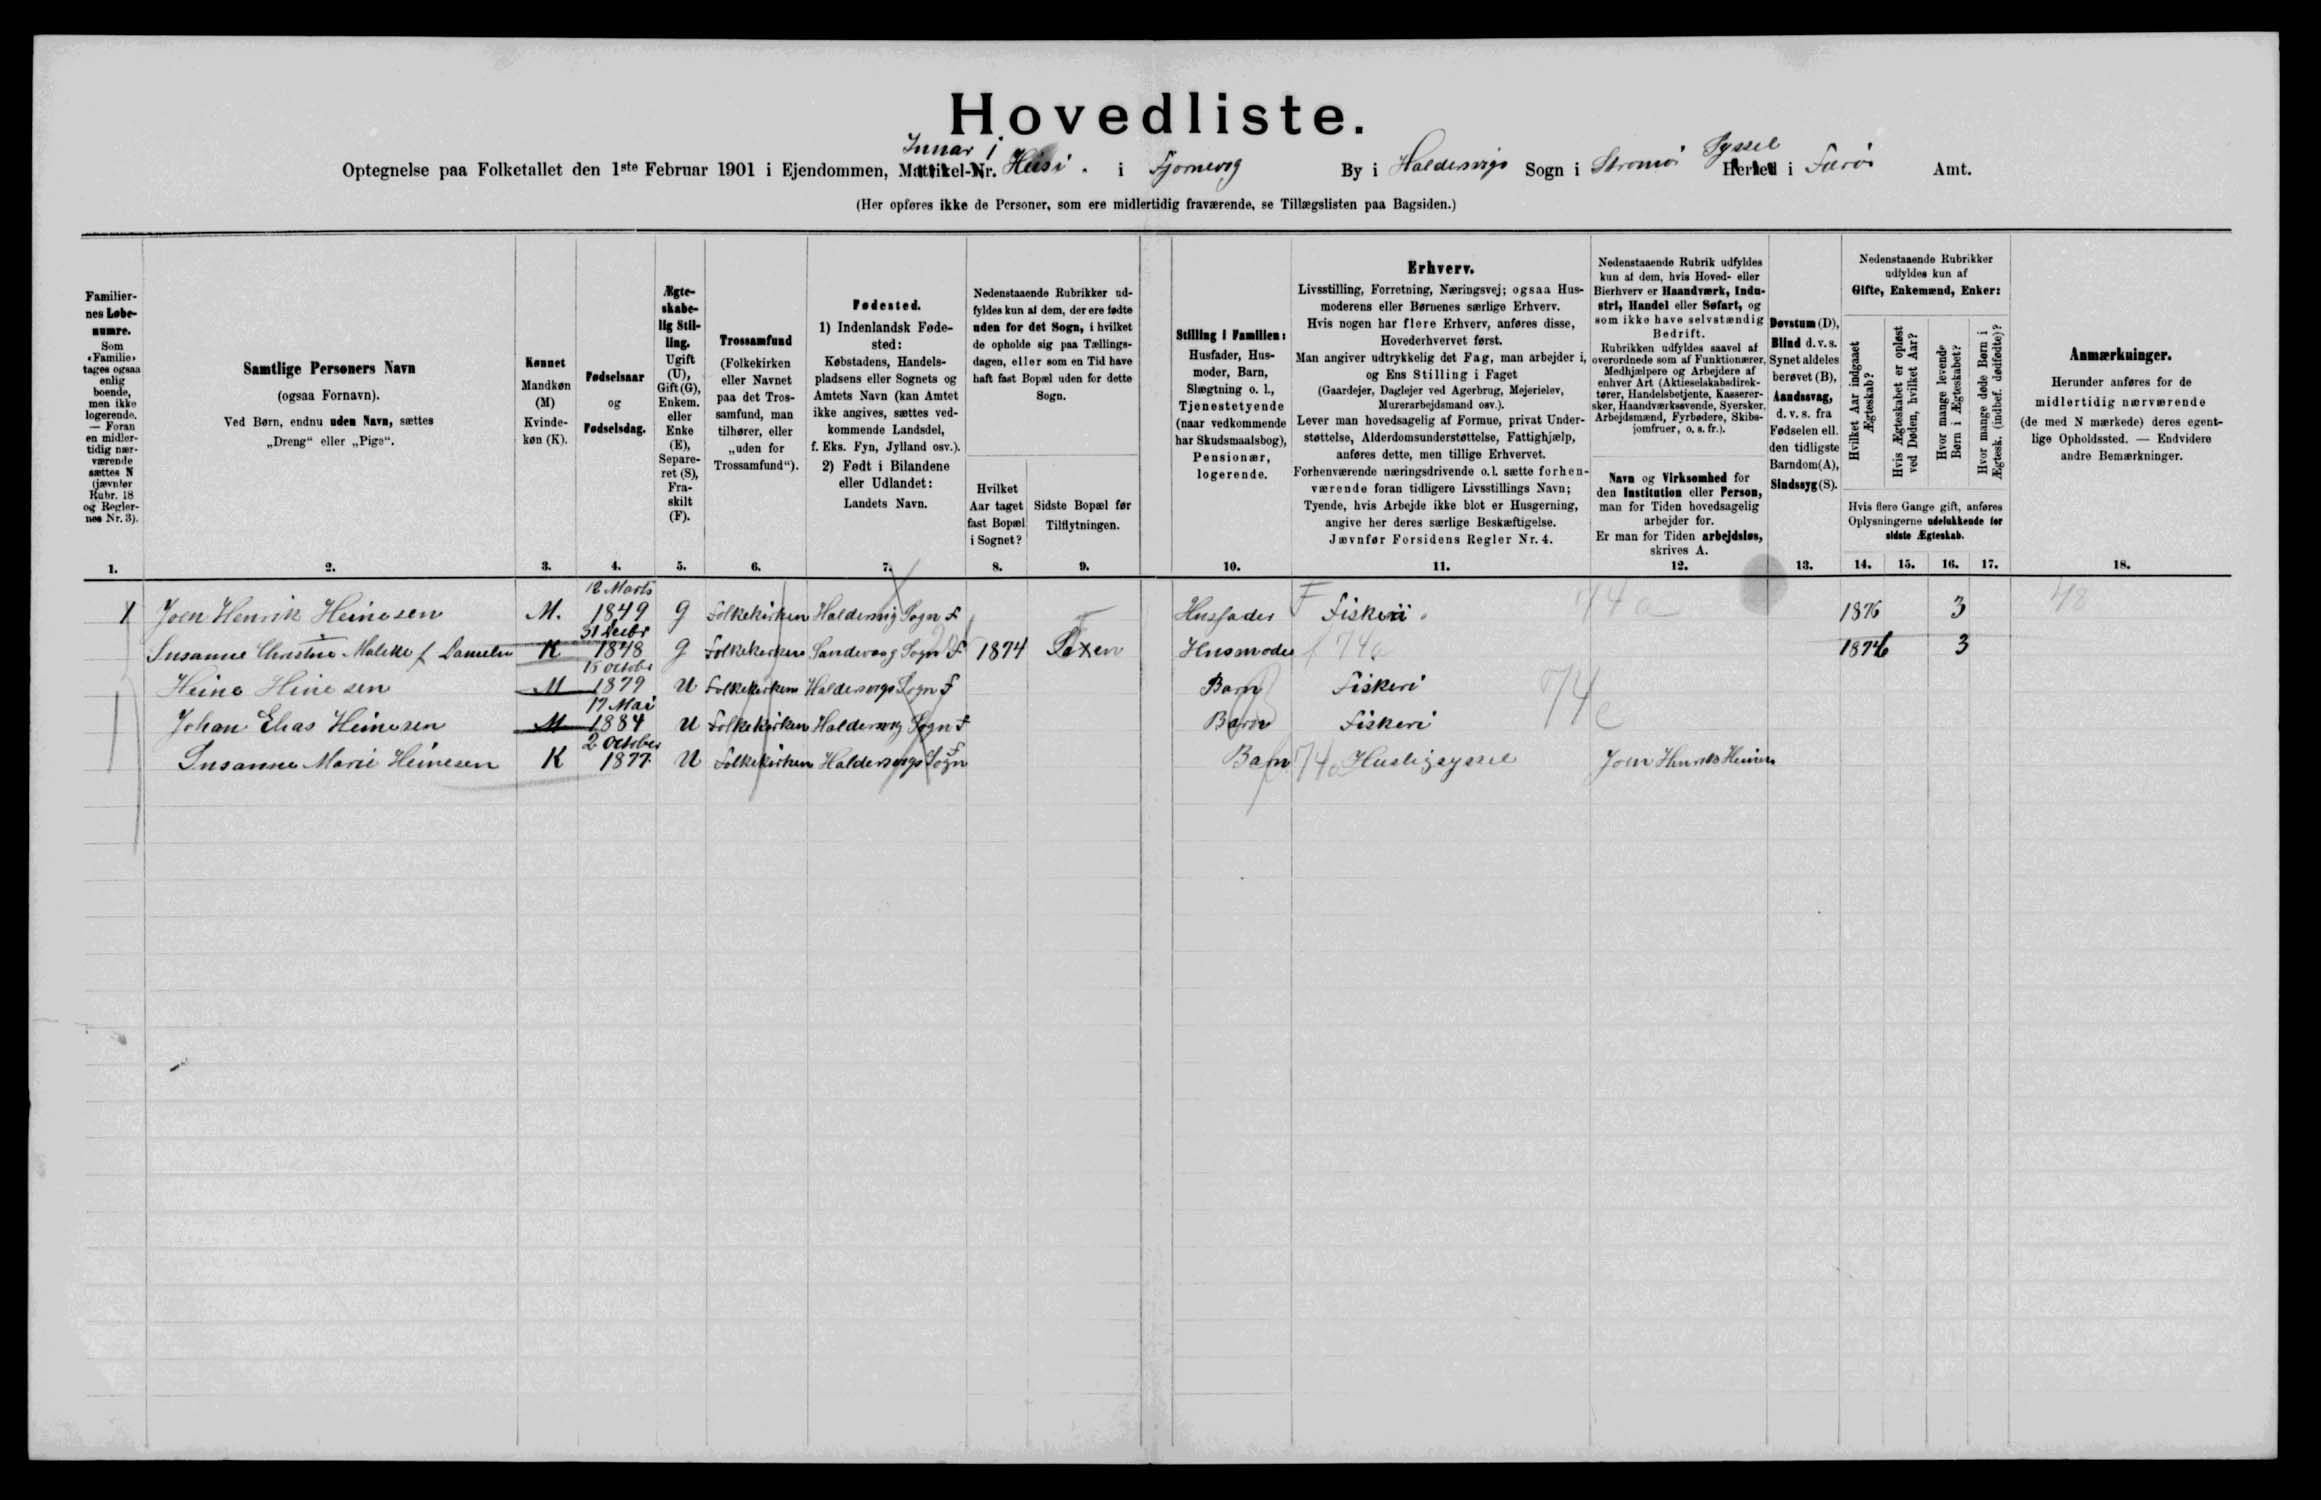 Hovedliste.
Optegnelse paa Folketallet den 1ste Februar 1901 i Ejendommen, Matrikel-Nr. Innar i Húsi. i Tjørnevig By i Haldersvigs Sogn i Strømø Herred Syssel i Færø Amt.
(Her opføres ikke de Personer, som ere midlertidig fraværende, se Tillægslisten paa Bagsiden.)
Familiernes Løbenumre.
Som «Familie» tages ogsaa enlig boende, men ikke logerende. — Foran en midlertidig nærværende sættes N (jævnfør Rubr. 18 og Reglernes Nr. 3).
Samtlige Personers Navn
(ogsaa Fornavn).
Ved Børn, endnu uden Navn, sættes
„Dreng“ eller „Pige“.
Kønnet
Mandkøn (M)
Kvindekøn (K).
Fødselsaar
og
Fødselsdag.
Ægteskabelig Stilling.
Ugift (U), Gift (G), Enkem. eller Enke (E), Separeret (S), Fraskilt (F).
Trossamfund
(Folkekirken eller Navnet paa det Trossamfund, man tilhører, eller „uden for Trossamfund“).
Fødested.
1) Indenlandsk Fødested:
Købstadens, Handelspladsens eller Sognets og Amtets Navn (kan Amtet ikke angives, sættes vedkommende Landsdel, f. Eks. Fyn, Jylland osv.).
2) Født i Bilandene eller Udlandet:
Landets Navn.
Nedenstaaende Rubrikker udfyldes kun af dem, der ere fødte uden for det Sogn, i hvilket de opholde sig paa Tællingsdagen, eller som en Tid have haft fast Bopæl uden for dette Sogn.
Hvilket Aar taget fast Bopæl i Sognet?
Sidste Bopæl før Tilflytningen.
Stilling i Familien:
Husfader, Husmoder, Barn, Slægtning o. l., Tjenestetyende (naar vedkommende har Skudsmaalsbog), Pensionær, logerende.
Erhverv.
Livsstilling, Forretning, Næringsvej; ogsaa Husmoderens eller Børnenes særlige Erhverv.
Hvis nogen har flere Erhverv, anføres disse, Hovederhvervet først.
Man angiver udtrykkelig det Fag, man arbejder i, og Ens Stilling i Faget
(Gaardejer, Daglejer ved Agerbrug, Mejerielev, Murerarbejdsmand osv.).
Lever man hovedsagelig af Formue, privat Understøttelse, Alderdomsunderstøttelse, Fattighjælp, anføres dette, men tillige Erhvervet.
Forhenværende næringsdrivende o. l. sætte forhenværende foran tidligere Livsstillings Navn;
Tyende, hvis Arbejde ikke blot er Husgerning, angive her deres særlige Beskæftigelse.
Jævnfør Forsidens Regler Nr. 4.
Nedenstaaende Rubrik udfyldes kun af dem, hvis Hoved- eller Bierhverv er Haandværk, Industri, Handel eller Søfart, og som ikke have selvstændig Bedrift.
Rubrikken udfyldes saavel af overordnede som af Funktionærer, Medhjælpere og Arbejdere af enhver Art (Aktieselskabsdirektører, Handelsbetjente, Kassererskær, Haandværkssvende, Syersker, Arbejdsmænd, Fyrbødere, Skibsjomfruer, o. s. fr.).
Navn og Virksomhed for den Institution eller Person, man for Tiden hovedsagelig arbejder for.
Er man for Tiden arbejdsløs, skrives A.
Døvstum (D), Blind d. v. s. Synet aldeles berøvet (B), Aandssvag, d. v. s. fra Fødselen ell. den tidligste Barndom (A), Sindssyg (S).
Nedenstaaende Rubrikker udfyldes kun af
Gifte, Enkemænd, Enker:
Hvilket Aar indgaaet Ægteskab?
Hvis Ægteskabet er opløst ved Døden, hvilket Aar?
Hvor mange levende Børn i Ægteskabet?
Hvor mange døde Børn i Ægtesk. (indbef. dødfødte)?
Hvis flere Gange gift, anføres Oplysningerne udelukkende for sidste Ægteskab.
Anmærkninger.
Herunder anføres for de midlertidig nærværende (de med N mærkede) deres egentlige Opholdssted. — Endvidere andre Bemærkninger.
1. 2. 3. 4. 5. 6. 7. 8. 9. 10. 11. 12. 13. 14. 15. 16. 17. 18.
1 Joen Henrik Heinesen M. 12 Marts 1849 G Folkekirken Haldersvig Sogn F Husfader F Fiskeri 74a 1876 3 48
Susanne Christine Malene f. Danielsen K 31 Decbr 1848 G Folkekirken Sandevaag Sogn F 1874 Saxen Husmoder f 74a 1876 3
Heine Heinesen M 15 Octobr 1879 U Folkekirken Haldersvigs Sogn F Barn Fiskeri 74c
Johan Elias Heinesen M 17 Mai 1884 U Folkekirken Haldersvig Sogn F Barn Fiskeri
Susanne Marie Heinesen K 2 October 1877 U Folkekirken Haldersvigs Sogn F Barn 74a Husligsyssel Joen Henrik Heinesen